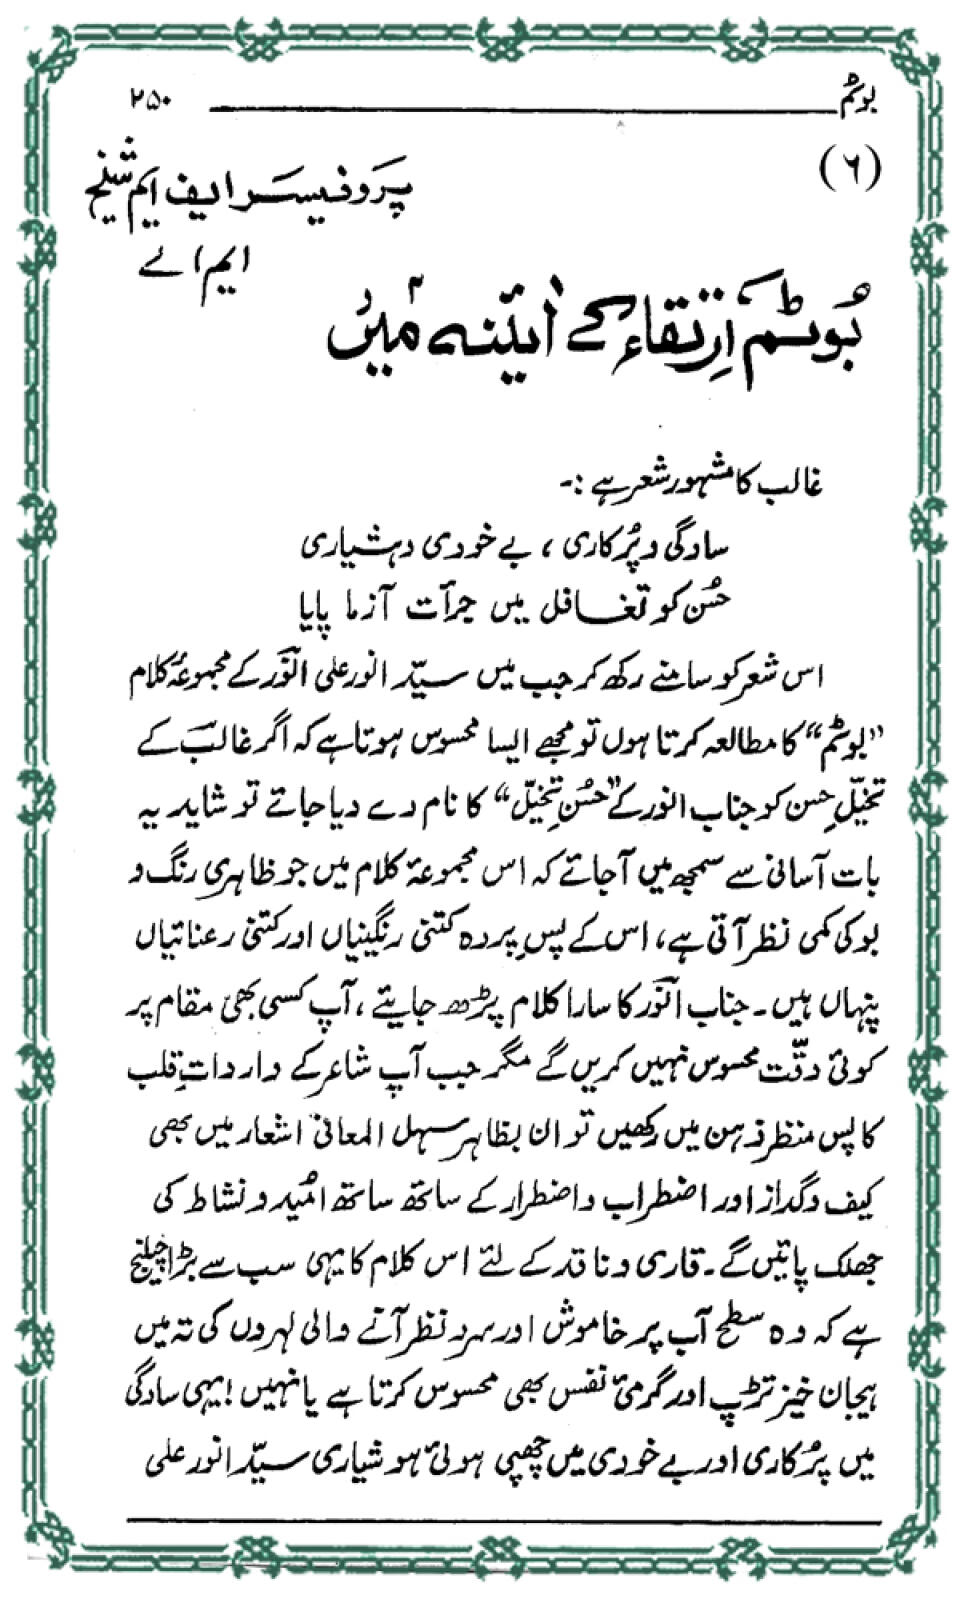 بوٹم ۲۵۰
(۶)
پروفیسر ایف ایم شیخ
ایم اے
بُوٹم اِرتقاء کے آئینہ میں
غالب کا مشہور شعر ہے :-
سادگی و پُرکاری ، بے خودی و ہشیاری
حُسن کو تغافل میں جرأت آزما پایا
اس شعر کو سامنے رکھ کر جب میں سیّد انور علی انوؔر کے مجموعۂ کلام
”بوٹم“ کا مطالعہ کرتا ہوں تو مجھے ایسا محسوس ہوتا ہے کہ اگر غالبؔ کے
تخیّلِ حسن کو جناب انور کے ”حُسنِ تخیّل“ کا نام دے دیا جائے تو شاید یہ
بات آسانی سے سمجھ میں آجائے کہ اس مجموعۂ کلام میں جو ظاہری رنگ و
بو کی کمی نظر آتی ہے، اس کے پسِ پردہ کتنی رنگینیاں اور کتنی رعنائیاں
پنہاں ہیں۔ جناب انوؔر کا سارا کلام پڑھ جایئے ، آپ کسی بھی مقام پر
کوئی دقّت محسوس نہیں کریں گے مگر جب آپ شاعر کے وارداتِ قلب
کا پس منظر ذہن میں رکھیں تو ان بظاہر سہل المعانی اشعار میں بھی
کیف و گداز اور اضطراب و اضطرار کے ساتھ ساتھ امُید و نشاط کی
جھلک پائیں گے۔ قاری و ناقد کے لئے اس کلام کا یہی سب سے بڑا چیلنج
ہے کہ وہ سطحِ آب پر خاموش اور سرد نظر آنے والی لہروں کی تہ میں
ہیجان خیز تڑپ اور گرمئ نفس بھی محسوس کرتا ہے یا نہیں ! یہی سادگی
میں پُرکاری اور بے خودی میں چھپی ہوئی ہوشیاری سیّد انور علی